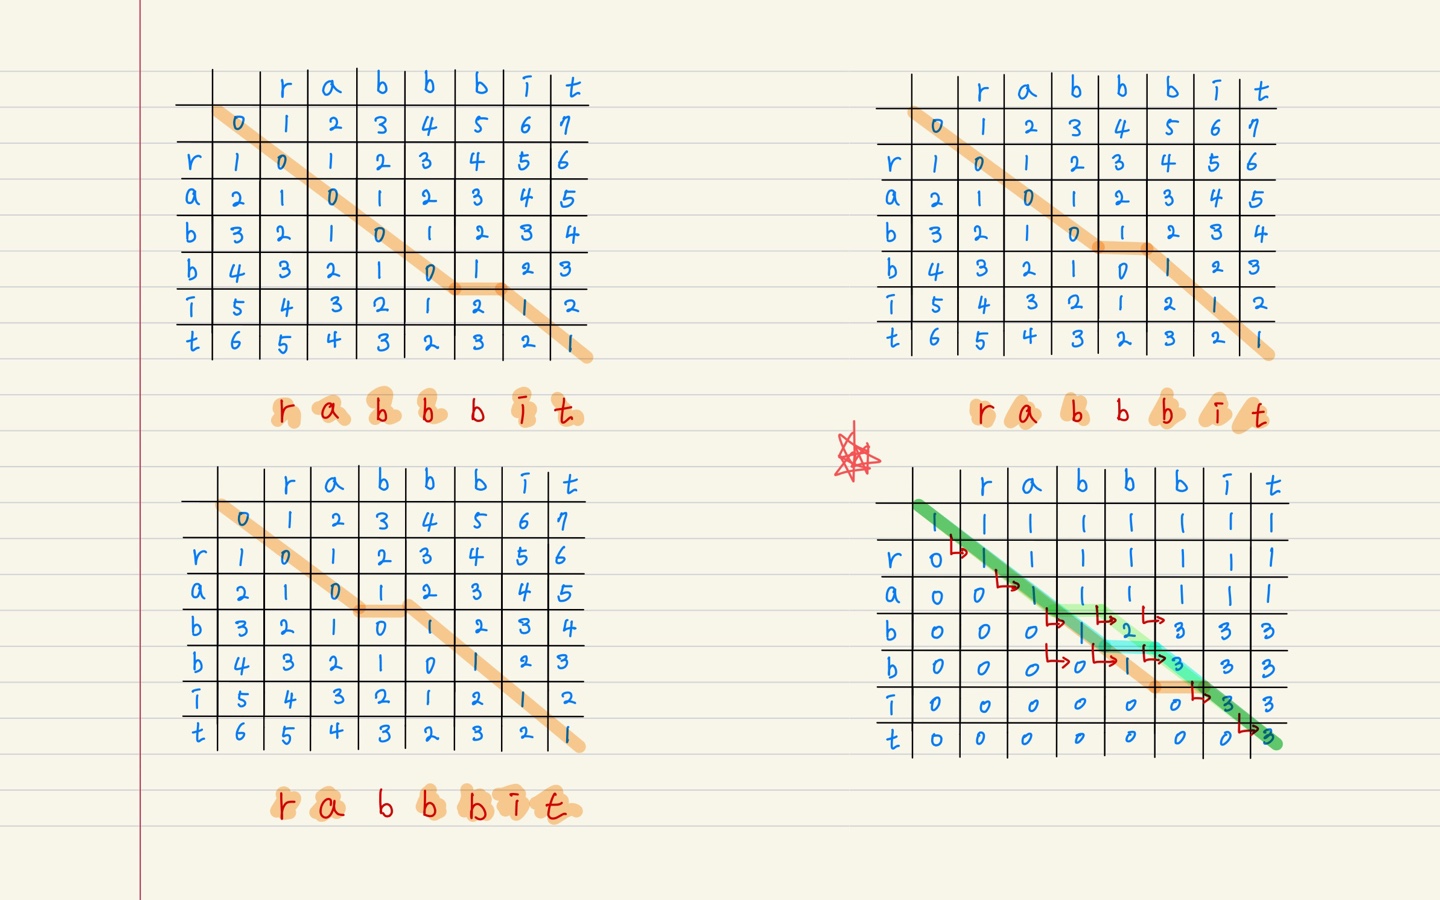 r a b b b i t
0 1 2 3 4 5 6 7
r 1 0 1 2 3 4 5 6
a 2 1 0 1 2 3 4 5
b 3 2 1 0 1 2 3 4
b 4 3 2 1 0 1 2 3
i 5 4 3 2 1 2 1 2
t 6 5 4 3 2 3 2 1
r a b b b i t
r a b b b i t
0 1 2 3 4 5 6 7
r 1 0 1 2 3 4 5 6
a 2 1 0 1 2 3 4 5
b 3 2 1 0 1 2 3 4
b 4 3 2 1 0 1 2 3
i 5 4 3 2 1 2 1 2
t 6 5 4 3 2 3 2 1
r a b b b i t
r a b b b i t
0 1 2 3 4 5 6 7
r 1 0 1 2 3 4 5 6
a 2 1 0 1 2 3 4 5
b 3 2 1 0 1 2 3 4
b 4 3 2 1 0 1 2 3
i 5 4 3 2 1 2 1 2
t 6 5 4 3 2 3 2 1
r a b b b i t
r a b b b i t
1 1 1 1 1 1 1 1
r 0 1 1 1 1 1 1 1
a 0 0 1 1 1 1 1 1
b 0 0 0 1 2 3 3 3
b 0 0 0 0 1 3 3 3
i 0 0 0 0 0 0 3 3
t 0 0 0 0 0 0 0 3